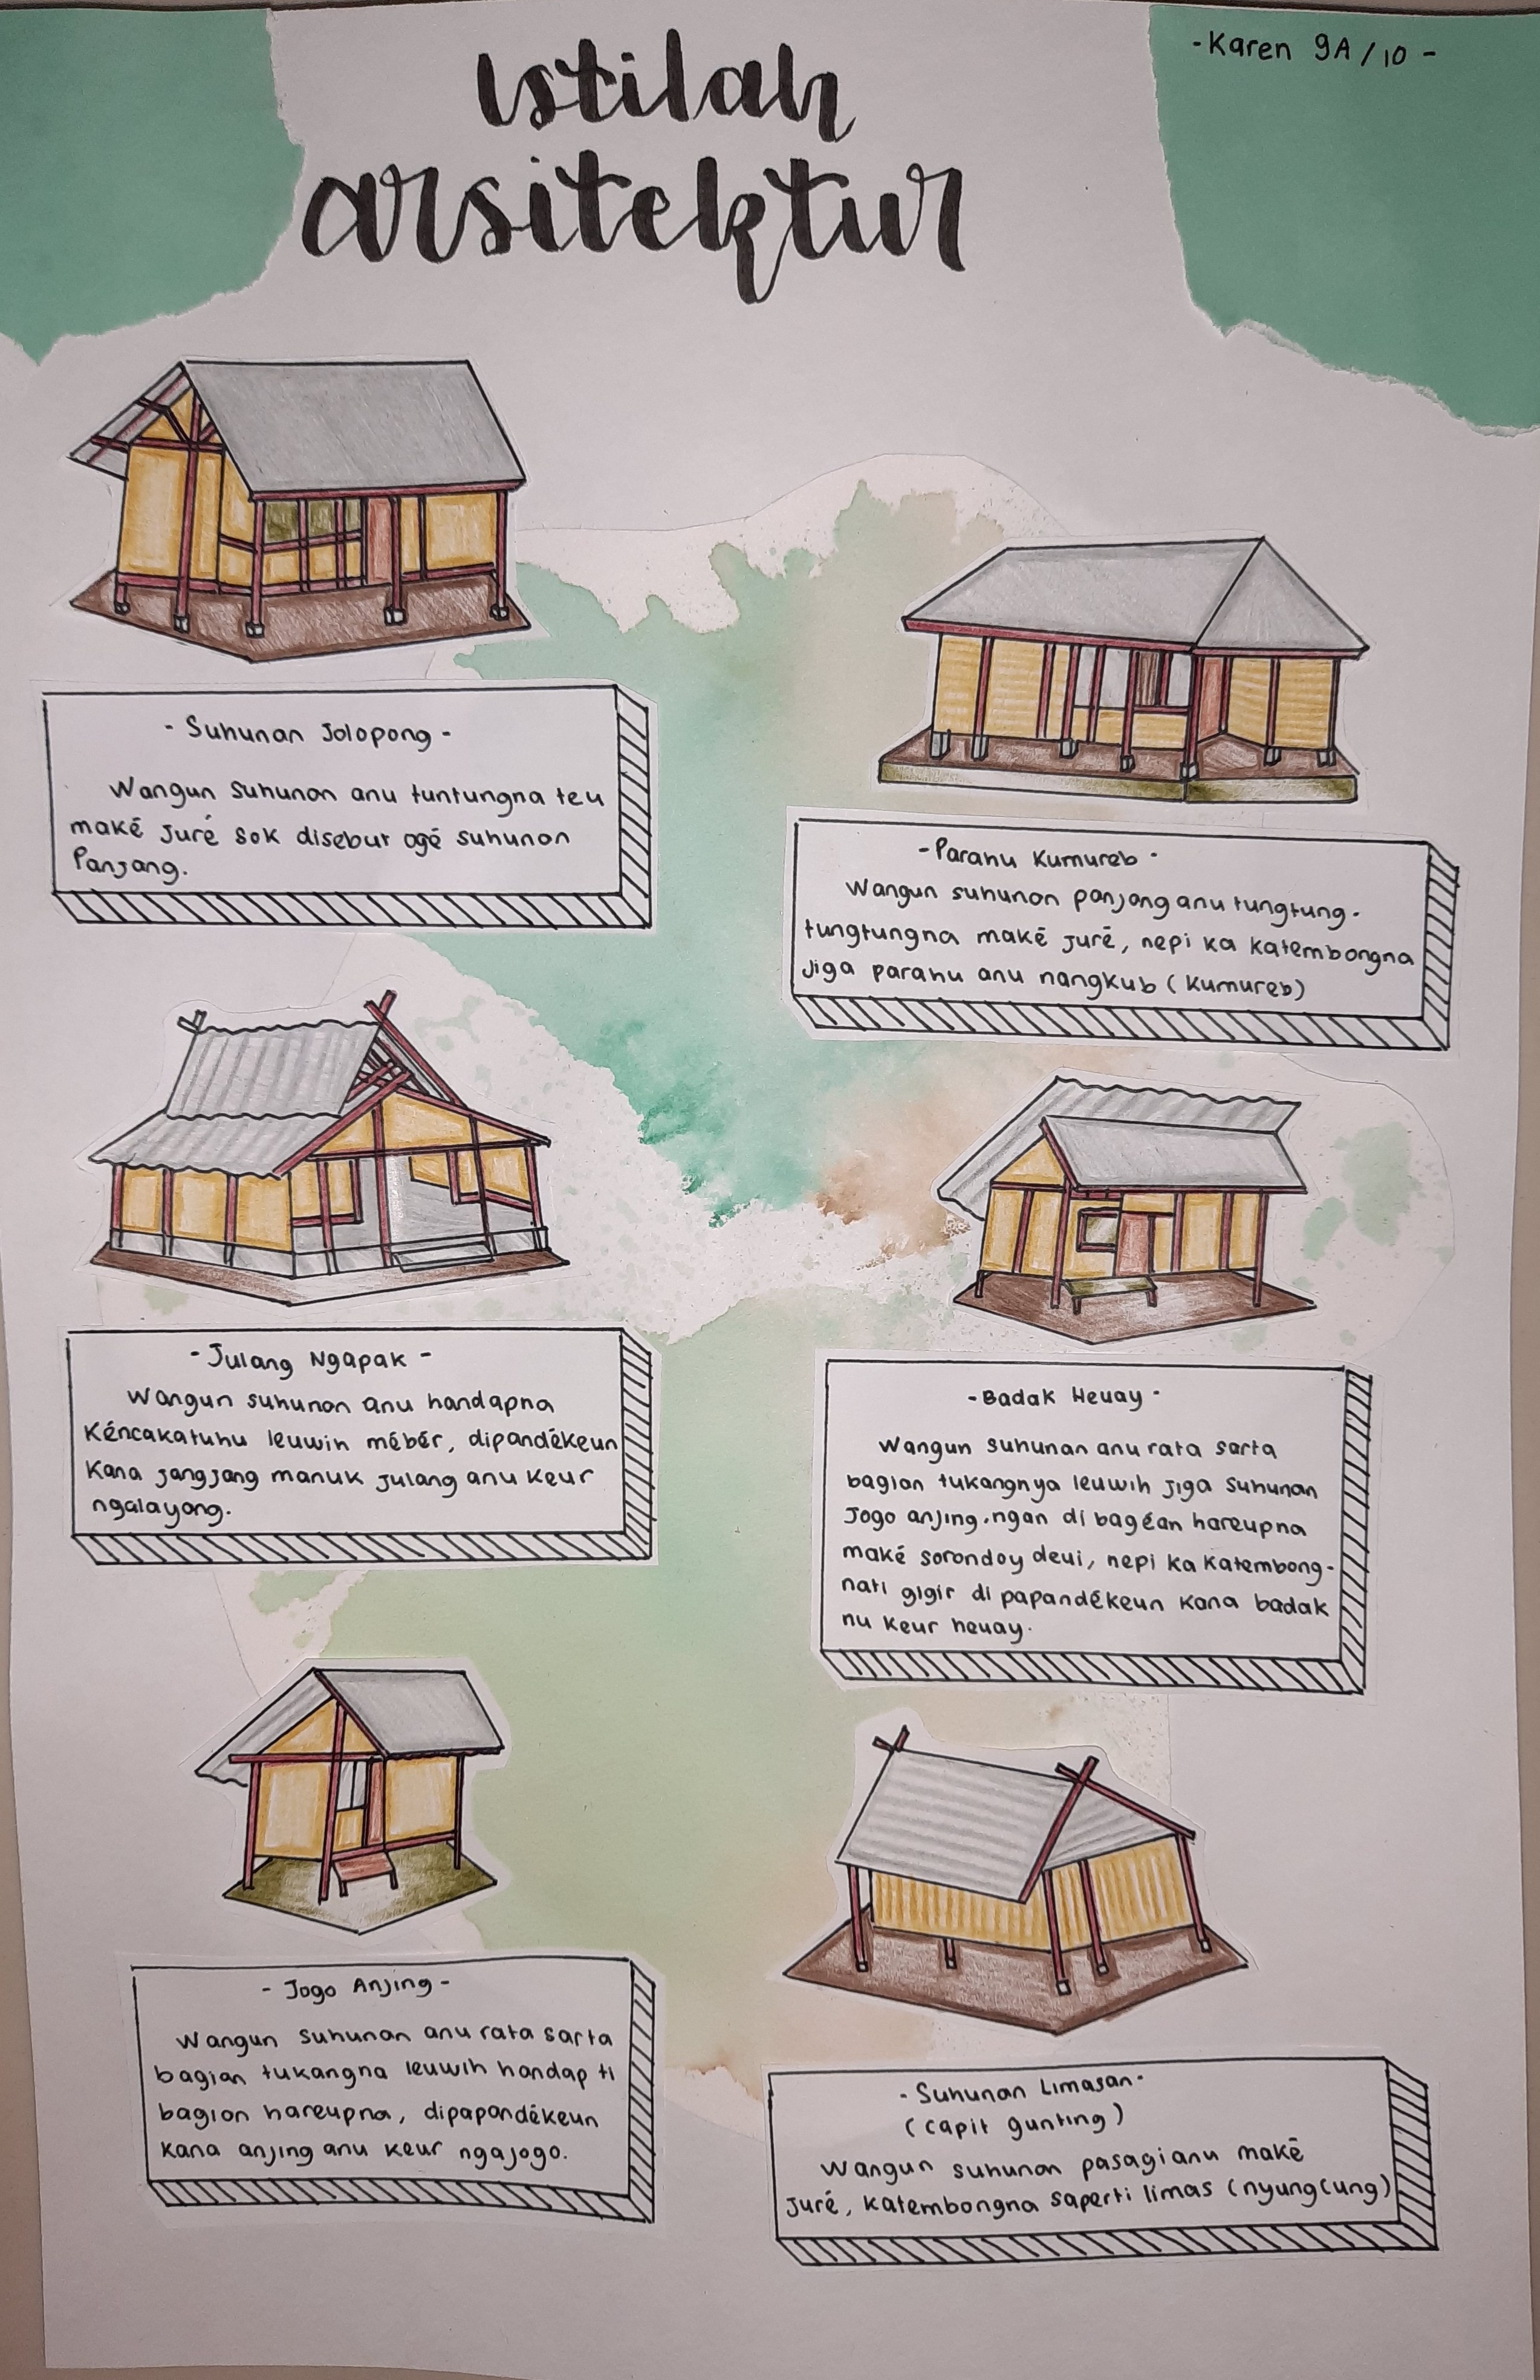 istilah
arsitektur
-Karen 9A/10-
- Suhunan Jolopong -
Wangun Suhunan anu tuntungna teu
maké Juré sok disebut ogé suhunan
Panjang.
-Parahu Kumureb-
Wangun suhunan panjang anu tungtung-
tungtungna maké juré, nepi ka katembongna
jiga parahu anu nangkub (kumureb)
-Julang Ngapak-
Wangun suhunan anu handapna
kéncakatuhu leuwih mébér, dipandékeun
kana jangjang manuk julang anu keur
ngalayang.
-Badak Heuay-
Wangun suhunan anu rata sarta
bagian tukangnya leuwih jiga suhunan
jogo anjing.ngan di bagéan hareupna
maké sorondoy deui, nepi ka katembong-
nati gigir di papandékeun kana badak
nu keur heuay.
- Jogo Anjing-
Wangun suhunan anu rata sarta
bagian tukangna leuwih handap ti
bagian hareupna, dipapandékeun
kana anjing anu keur ngajogo.
-Suhunan Limasan-
(capit gunting)
Wangun suhunan pasagi anu maké
juré, katembongna saperti limas (nyungcung)